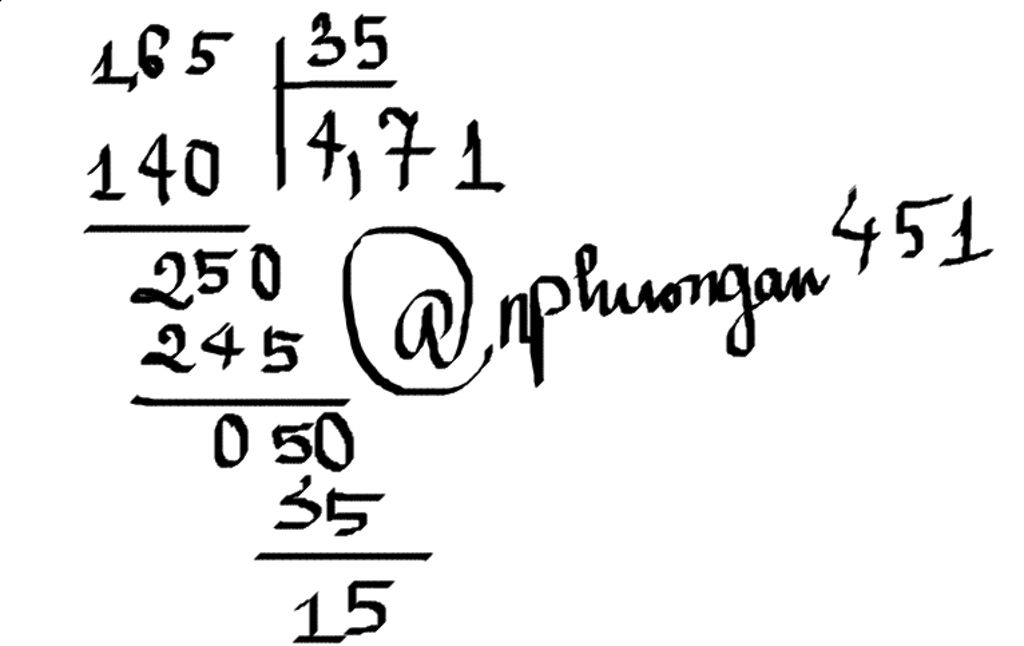 1,65 35
140 4,71
250
245 @nphuongan451
050
35
15